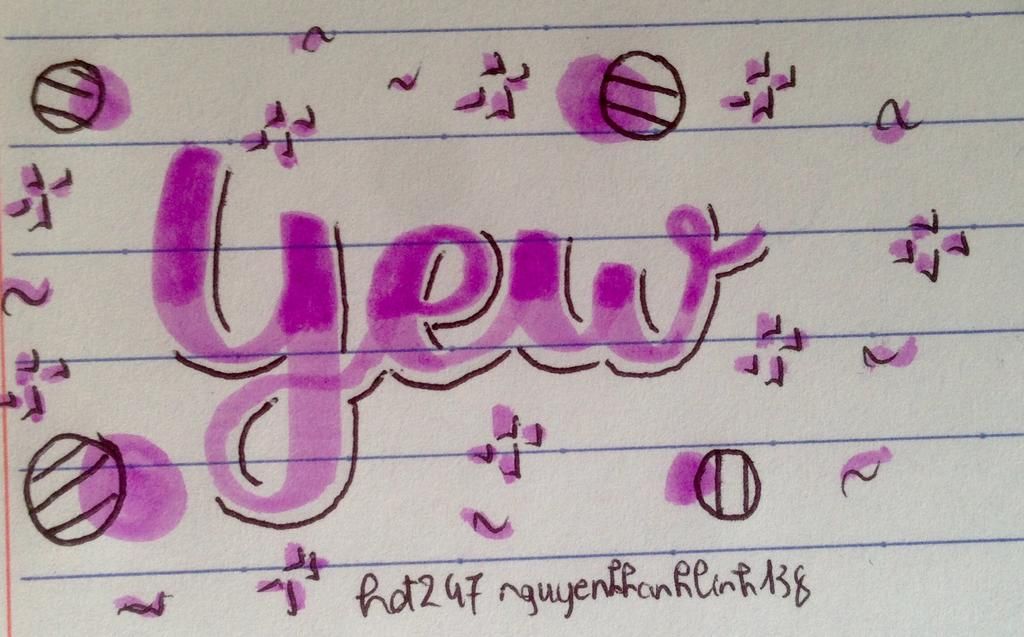 Yew
hot247 nguyenthanhlinh138